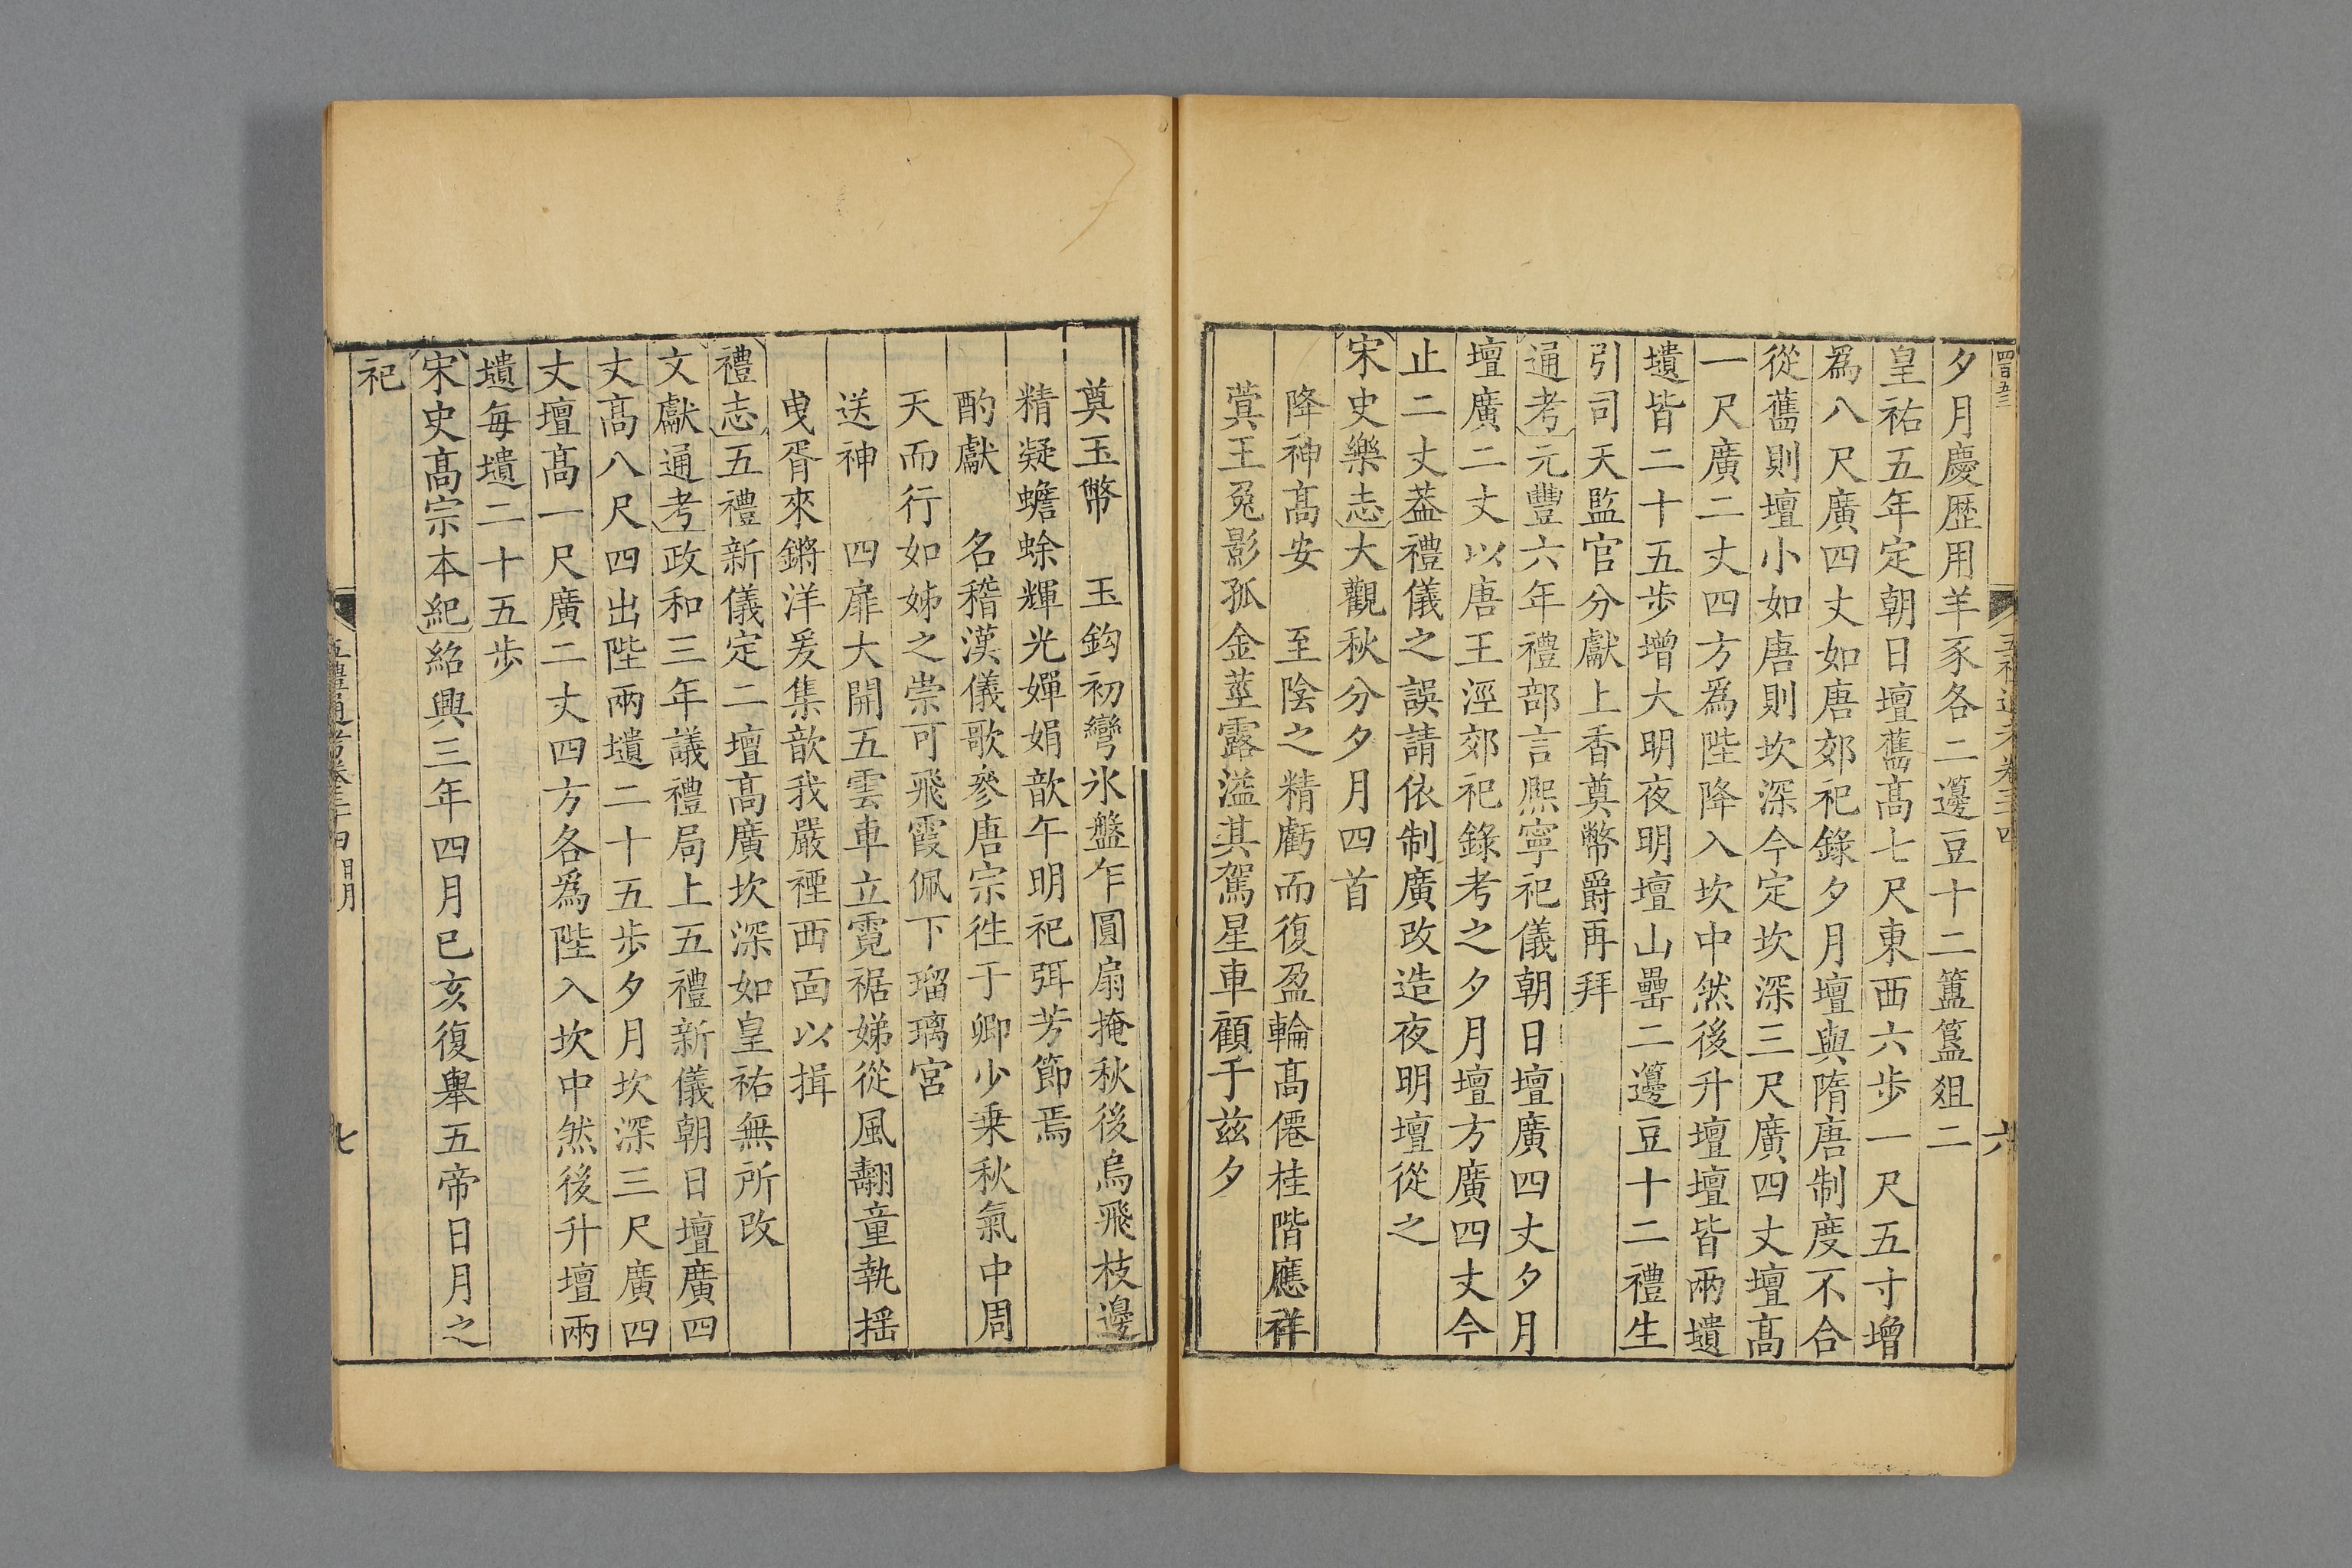 夕月慶歷用羊豕各二籩豆十二簠簋俎二
皇祐五年定朝日壇舊髙七尺東西六歩一尺五寸增
爲八尺廣四丈如唐郊祀錄夕月壇與隋唐制度不合
從舊則壇小如唐則坎深今定坎深三尺廣四丈壇髙
一尺廣二丈四方爲陛降入坎中然後升壇壇皆兩壝
壝皆二十五歩增大明夜明壇山罍二籩豆十二禮生
引司天監官分獻上香奠幣爵再拜
通考元豐六年禮部言熈寧祀儀朝日壇廣四丈夕月
壇廣二丈以唐王涇郊祀錄考之夕月壇方廣四丈今
止二丈葢禮儀之誤請依制廣改造夜明壇從之
宋史樂志大觀秋分夕月四首
降神髙安 至陰之精虧而復盈輪髙僊桂階應祥
蓂玉兔影孤金莖露溢其駕星車顧于兹夕
奠玉幣 玉鈎初彎氷盤乍圓扇掩秋後烏飛枝邊
精凝蟾蜍輝光嬋娟歆午明祀弭芳節焉
酌獻 名稽漢儀歌參唐宗徃于卿少乗秋氣中周
天而行如姊之崇可飛霞佩下瑠璃宮
送神 四扉大開五雲車立霓裾娣從風翿童執揺
曳胥來鏘洋爰集歆我嚴禋西面以揖
禮志五禮新儀定二壇髙廣坎深如皇祐無所改
文獻通考政和三年議禮局上五禮新儀朝日壇廣四
丈髙八尺四出陛兩壝二十五歩夕月坎深三尺廣四
丈壇髙一尺廣二丈四方各爲陛入坎中然後升壇兩
壝毎壝二十五歩
宋史髙宗本紀紹興三年四月已亥復舉五帝日月之
祀